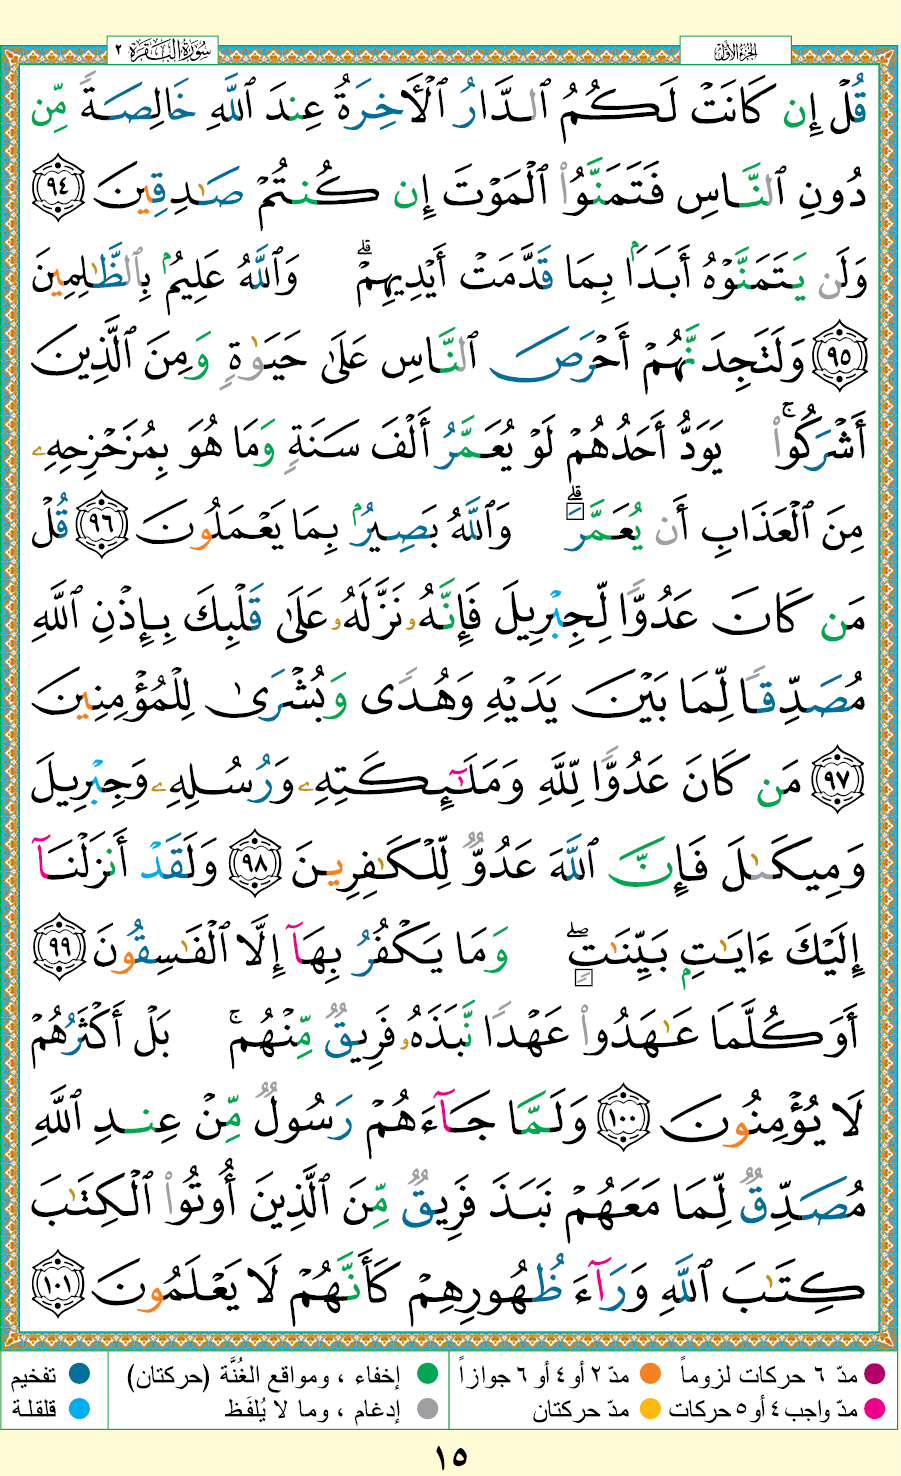 الجزء الأول
سورة البقرة ٢
قُلْ إِن كَانَتْ لَكُمُ ٱلدَّارُ ٱلْـَٔاخِرَةُ عِندَ ٱللَّهِ خَالِصَةً مِّن
دُونِ ٱلنَّاسِ فَتَمَنَّوُا۟ ٱلْمَوْتَ إِن كُنتُمْ صَـٰدِقِينَ ٩٤
وَلَن يَتَمَنَّوْهُ أَبَدًۢا بِمَا قَدَّمَتْ أَيْدِيهِمْ ۗ وَٱللَّهُ عَلِيمٌۢ بِٱلظَّـٰلِمِينَ
٩٥ وَلَتَجِدَنَّهُمْ أَحْرَصَ ٱلنَّاسِ عَلَىٰ حَيَوٰةٍ وَمِنَ ٱلَّذِينَ
أَشْرَكُوا۟ ۚ يَوَدُّ أَحَدُهُمْ لَوْ يُعَمَّرُ أَلْفَ سَنَةٍ وَمَا هُوَ بِمُزَحْزِحِهِۦ
مِنَ ٱلْعَذَابِ أَن يُعَمَّرَ ۗ وَٱللَّهُ بَصِيرٌۢ بِمَا يَعْمَلُونَ ٩٦ قُلْ
مَن كَانَ عَدُوًّا لِّجِبْرِيلَ فَإِنَّهُۥ نَزَّلَهُۥ عَلَىٰ قَلْبِكَ بِإِذْنِ ٱللَّهِ
مُصَدِّقًا لِّمَا بَيْنَ يَدَيْهِ وَهُدًى وَبُشْرَىٰ لِلْمُؤْمِنِينَ
٩٧ مَن كَانَ عَدُوًّا لِّلَّهِ وَمَلَـٰٓئِكَتِهِۦ وَرُسُلِهِۦ وَجِبْرِيلَ
وَمِيكَىٰلَ فَإِنَّ ٱللَّهَ عَدُوٌّ لِّلْكَـٰفِرِينَ ٩٨ وَلَقَدْ أَنزَلْنَآ
إِلَيْكَ ءَايَـٰتٍۭ بَيِّنَـٰتٍ ۖ وَمَا يَكْفُرُ بِهَآ إِلَّا ٱلْفَـٰسِقُونَ ٩٩
أَوَكُلَّمَا عَـٰهَدُوا۟ عَهْدًا نَّبَذَهُۥ فَرِيقٌ مِّنْهُم ۚ بَلْ أَكْثَرُهُمْ
لَا يُؤْمِنُونَ ١٠٠ وَلَمَّا جَآءَهُمْ رَسُولٌ مِّنْ عِندِ ٱللَّهِ
مُصَدِّقٌ لِّمَا مَعَهُمْ نَبَذَ فَرِيقٌ مِّنَ ٱلَّذِينَ أُوتُوا۟ ٱلْكِتَـٰبَ
كِتَـٰبَ ٱللَّهِ وَرَآءَ ظُهُورِهِمْ كَأَنَّهُمْ لَا يَعْلَمُونَ ١٠١
مدّ ٦ حركات لزوماً مدّ ٢ أو ٤ أو ٦ جوازاً إخفاء ، ومواقع الغُنَّة (حركتان) تفخيم
مدّ واجب ٤ أو ٥ حركات مدّ حركتان إدغام ، وما لا يُلفَظ قلقلة
١٥